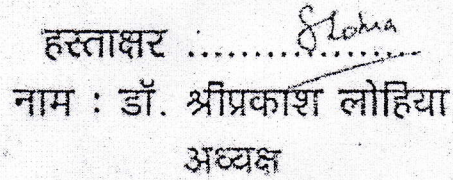 हस्ताक्षर :....................
नाम : डॉ. श्रीप्रकाश लोहिया
अध्यक्ष